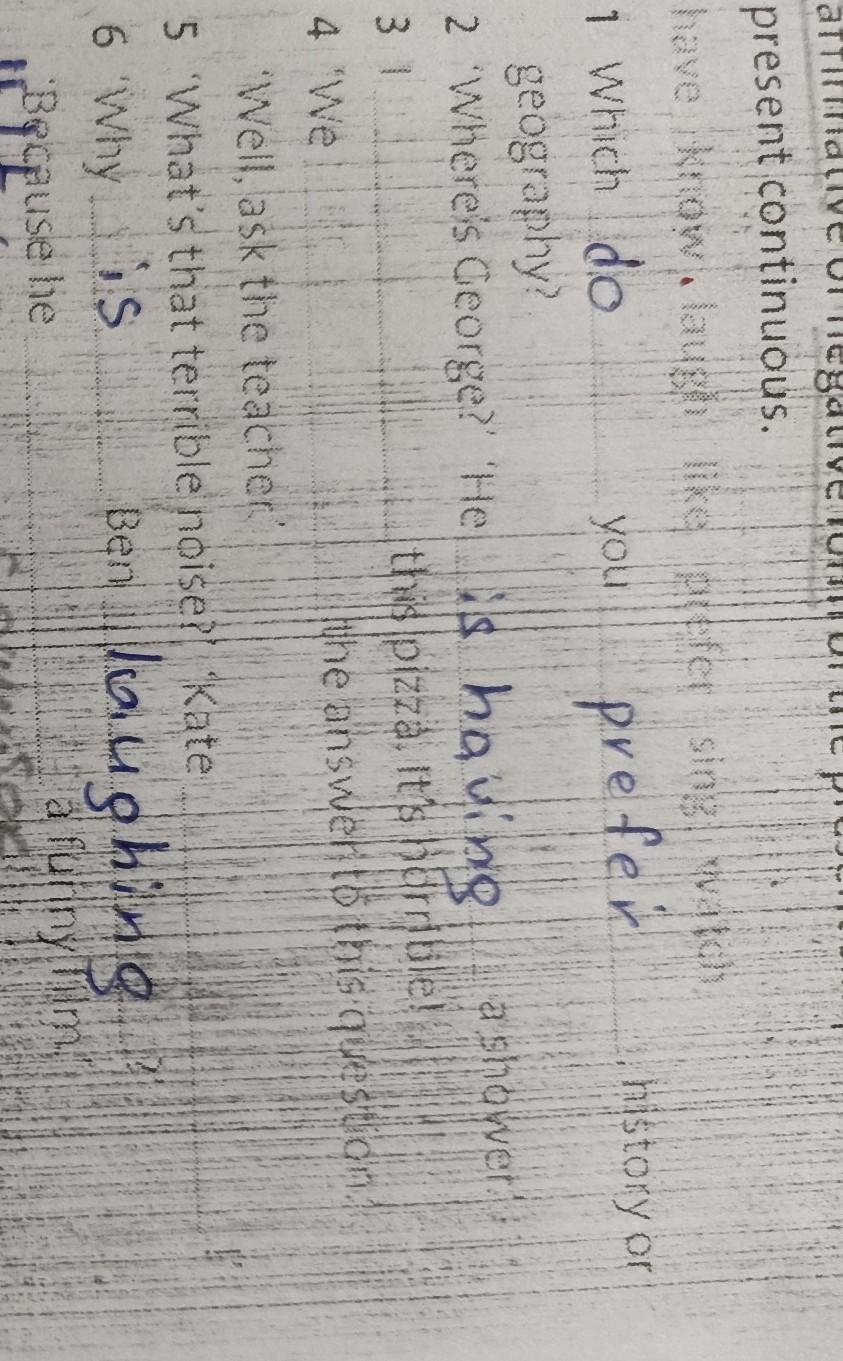 affirmative or negative form of the present
present continuous.
have know laugh like prefer sing watch
1 Which do you prefer history or
geography?
2 'Where's George?' 'He is having a shower.'
3 I this pizza. It's horrible!
4 'We the answer to this question.'
'Well, ask the teacher.'
5 'What's that terrible noise?' 'Kate !'
6 'Why is Ben laughing ?'
'Because he a funny film.'